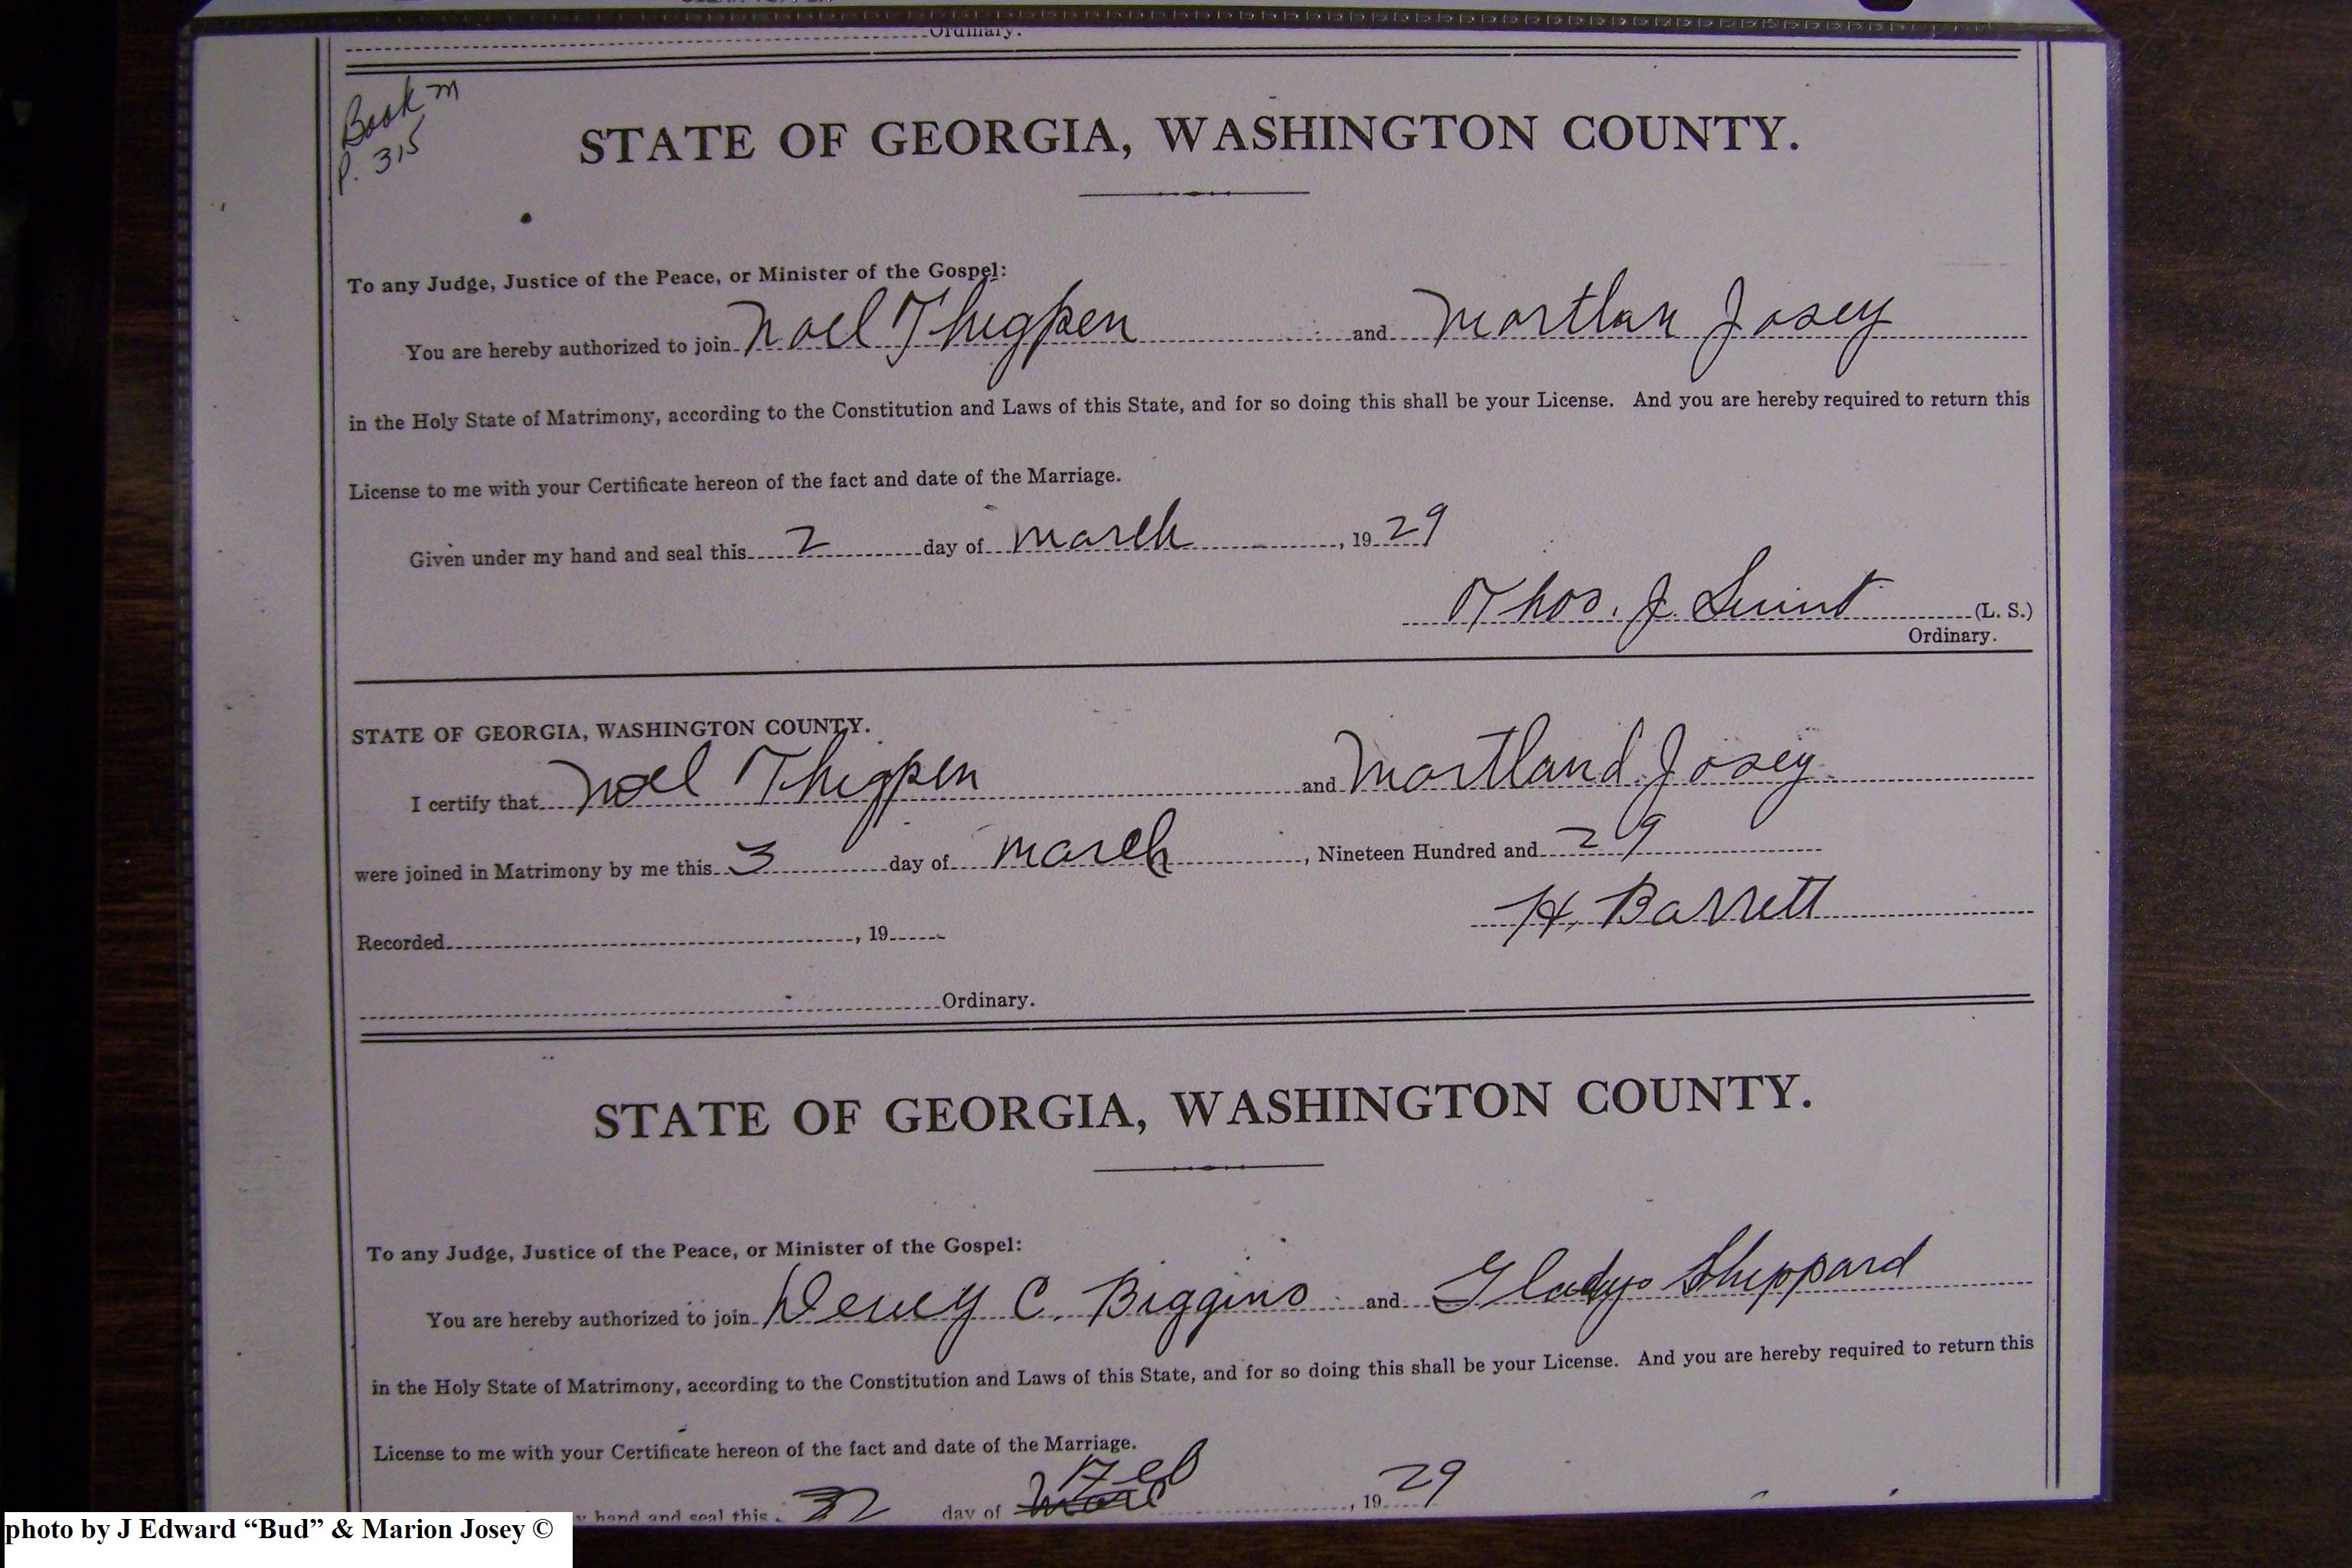 Ordinary.
Book M
P. 315
STATE OF GEORGIA, WASHINGTON COUNTY.
To any Judge, Justice of the Peace, or Minister of the Gospel:
You are hereby authorized to join Noel Thigpen and Martlan Josey
in the Holy State of Matrimony, according to the Constitution and Laws of this State, and for so doing this shall be your License. And you are hereby required to return this
License to me with your Certificate hereon of the fact and date of the Marriage.
Given under my hand and seal this 2 day of March, 1929
Thos. J. Swint (L. S.)
Ordinary.
STATE OF GEORGIA, WASHINGTON COUNTY.
I certify that Noel Thigpen and Martland Josey
were joined in Matrimony by me this 3 day of March, Nineteen Hundred and 29
H. Barrett
Recorded, 19
Ordinary.
STATE OF GEORGIA, WASHINGTON COUNTY.
To any Judge, Justice of the Peace, or Minister of the Gospel:
You are hereby authorized to join Dewey C. Biggins and Gladys Sheppard
in the Holy State of Matrimony, according to the Constitution and Laws of this State, and for so doing this shall be your License. And you are hereby required to return this
License to me with your Certificate hereon of the fact and date of the Marriage.
hand and seal this day of Feb, 1929
photo by J Edward “Bud” & Marion Josey ©